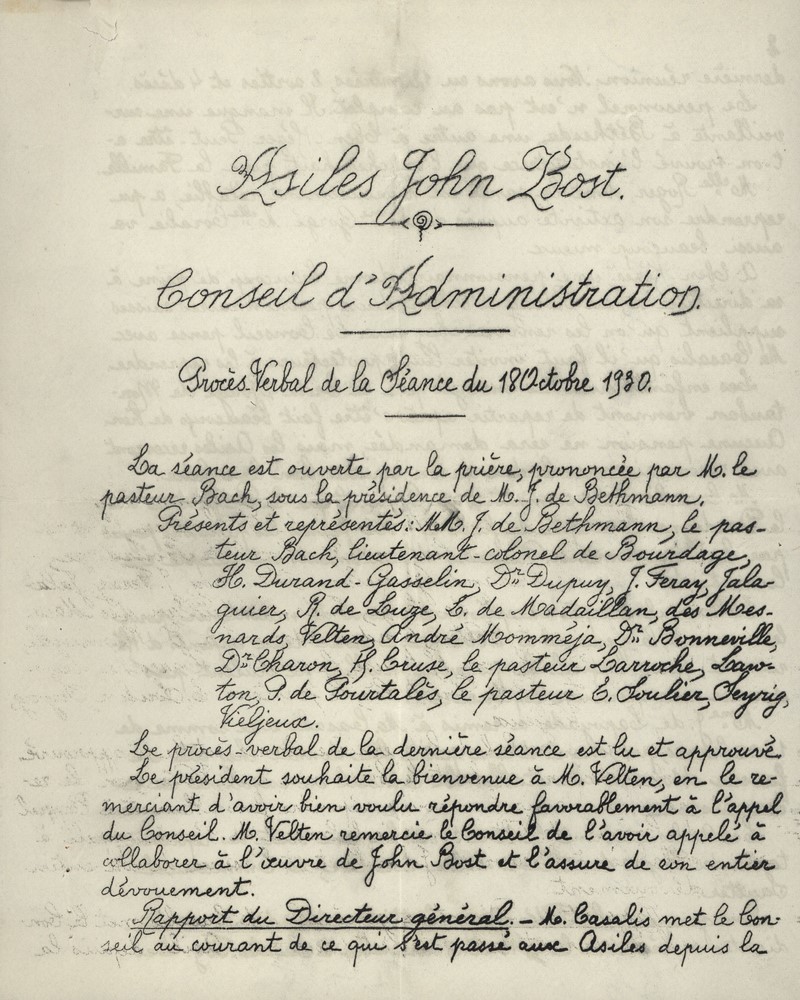 Asiles John Bost.
Conseil d'Administration.
Procès-Verbal de la Séance du 18 Octobre 1930.
La séance est ouverte par la prière, prononcée par M. le
pasteur Bach, sous la présidence de M. J. de Bethmann.
Présents et représentés: MM. J. de Bethmann, le pas-
teur Bach, lieutenant-colonel de Bourdage,
H. Durand-Gasselin, Dr Dupuy, J. Feray, Jala-
guier, R. de Luze, L. de Madaillan, des Mes-
nards, Velten, André Momméja, Dr Bonneville,
Dr Charon, H. Cruse, le pasteur Larroche, Law-
ton, P. de Pourtalès, le pasteur E. Soulier, Seyrig,
Vieljeux.
Le procès-verbal de la dernière séance est lu et approuvé.
Le président souhaite la bienvenue à M. Velten, en le re-
merciant d'avoir bien voulu répondre favorablement à l'appel
du Conseil. M. Velten remercie le Conseil de l'avoir appelé à
collaborer à l'œuvre de John Bost et l'assure de son entier
dévouement.
Rapport du Directeur général. – M. Casalis met le Con-
seil au courant de ce qui s'est passé aux Asiles depuis la